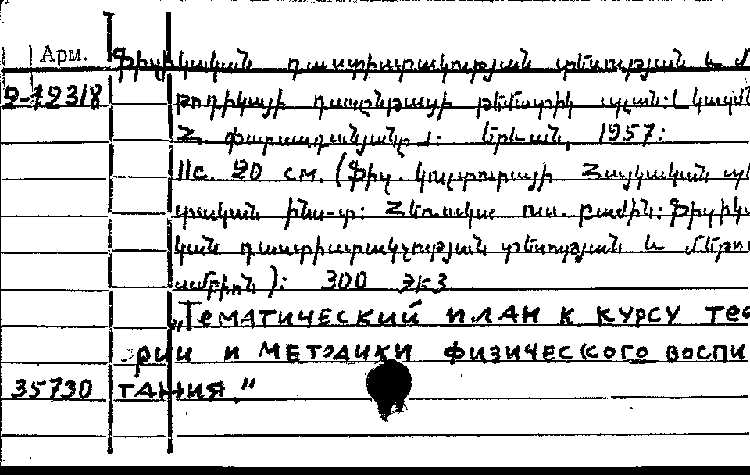 Арм. Ֆիզիկական դաստիարակության տեսության և մ
2-1231/8 թոդիկայի դասընթացի թեմատիկ պլան: (Կազմ
Հ. Փարսադանյանը): Երևան, 1957:
11с. 20 см. (Ֆիզ. կուլտուրայի Հայկական պե
տական ինս-տ: Հեռակա ուս. բաժին: Ֆիզիկա
կան դաստիարակչության տեսության և մեթո
ամբիոն): 300 экз
„Тематический план к курсу тео
рии и методики физического воспи
35730 тания."